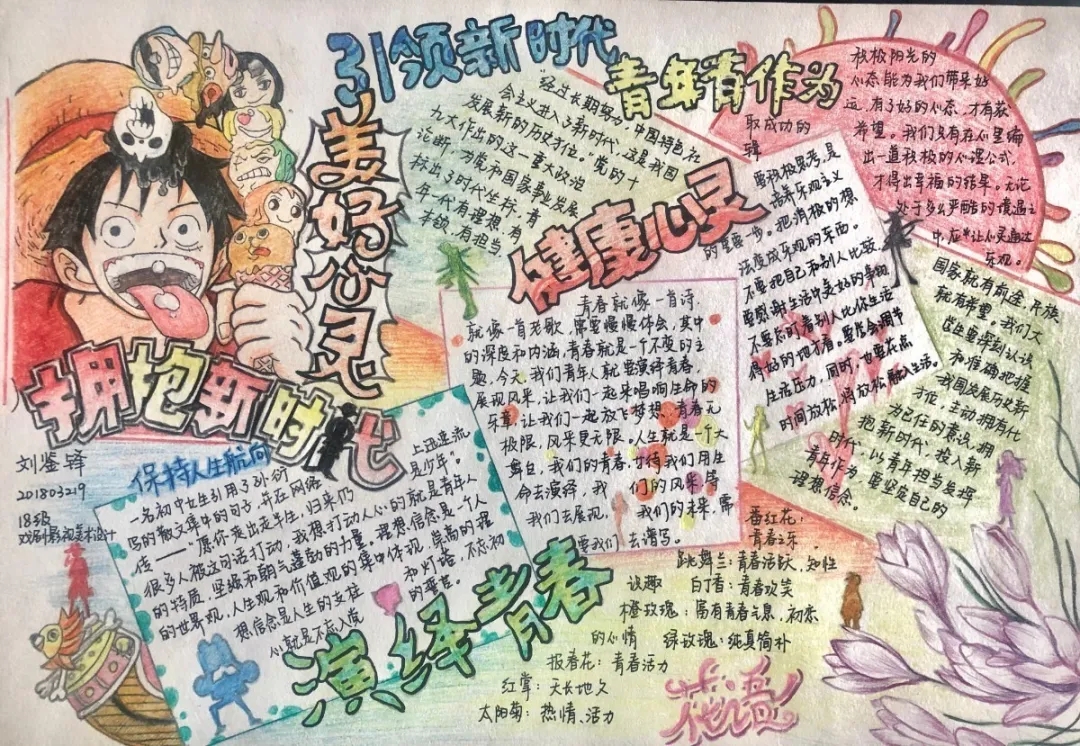 引领新时代
青年有作为
美好心灵
拥抱新时代
"经过长期努力,中国特色社
会主义进入了新时代,这是我国
发展新的历史方位。"党的十
九大作出的这一重大政治
论断,为党和国家事业发展
标出了时代坐标,青
年一代有理想、有
本领、有担当,
国家就有前途,民族
就有希望。我们大
学生要深刻认识
和准确把握
我国发展历史新
方位,主动拥有代
为己任的意识,拥
抱新时代、投入新
时代,以青年担当发挥
青年作为,要坚定自己的
理想信念。
积极阳光的
心态能为我们带来好
运,有了好的心态,才有获
取成功的
希望。我们只有在心里编
出一道积极的心理公式,
才得出幸福的结果。无论
处于多么严酷的境遇之
中,应让心灵通达
乐观。
健康心灵
要积极思考,是
培养乐观主义
的重要一步。把消极的想
法变成乐观的东西。
不要把自己和别人比较
要感谢生活中美好的等
不要总盯着别人比你生活
得好的地方看。要学会调节
生活压力,同时,也要花点
时间放松,将放松融入生活。
青春就像一首诗,
就像一首老歌,需要慢慢体会,其中
的深度和内涵,青春就是一个不变的主
题,今天,我们青年人就要演绎青春,
展现风采,让我们一起来唱响生命的
乐章,让我们一起放飞梦想,青春无
极限,风采更无限,人生就是一个大
舞台,我们的青春,才待我们用生
命去演绎,我们的风采,等
我们去展现,我们的未来,需
要我们去谱写。
刘鉴铎
201803219
18级
戏剧影视美术设计
保持人生航向
一名初中女生引用了孙衍
写的散文集中的句子,并在网络
上迅速流
传——"愿你走出半生,归来仍
是少年"。
很多人被这句话打动,我想打动人心的就是青年人
的特质,坚强和朝气蓬勃的力量。理想信念是一个人
的世界观,人生观和价值观的集中体现,崇高的理
想信念是人生的支柱
和灯塔,不忘初
心就是不忘入党
的誓言。
演绎青春
番红花:
青春之乐
跳舞兰:青春活跃,知性
谈趣
白丁香:青春欢笑
橙玫瑰:富有青春气息,初恋
的心情
绿玫瑰:纯真简朴
报春花:青春活力
红掌:天长地久
太阳菊:热情、活力
花语